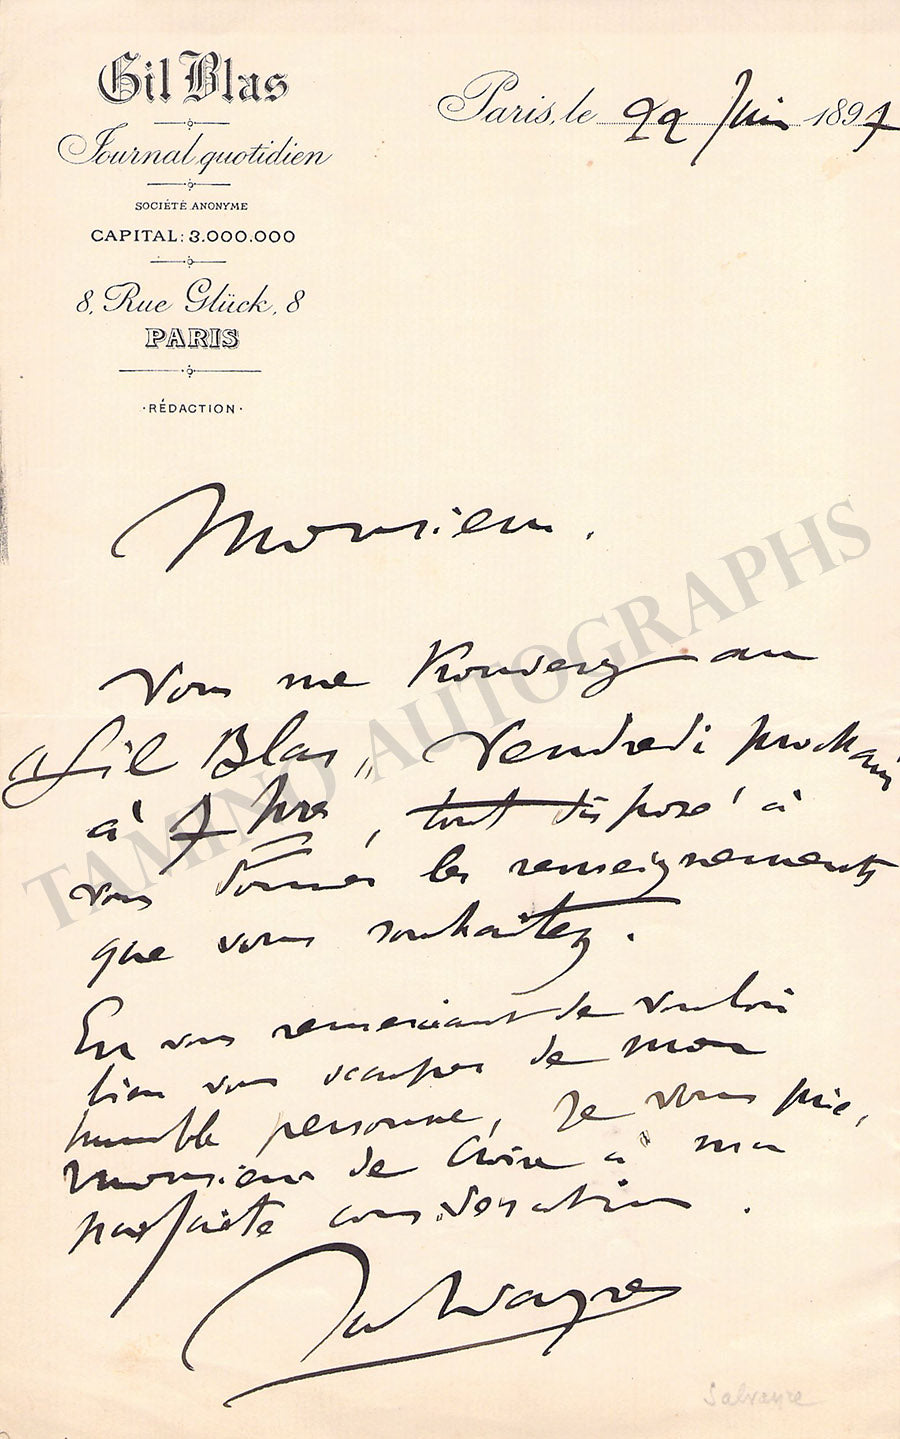 Gil Blas
Journal quotidien
SOCIÉTÉ ANONYME
CAPITAL: 3.000.000
8, Rue Glück, 8
PARIS
·RÉDACTION·
Paris, le 22 Juin 1897
Monsieur.
Vous me trouverez au
"Gil Blas" Vendredi prochain
à 7 hres, tout disposé à
vous donner les renseignements
que vous souhaitez.
En vous remerciant de vouloir
bien vous occuper de mon
humble personne, je vous prie,
monsieur de croire à ma
parfaite considération.
Salvayre
Salvayre
TAMINO AUTOGRAPHS